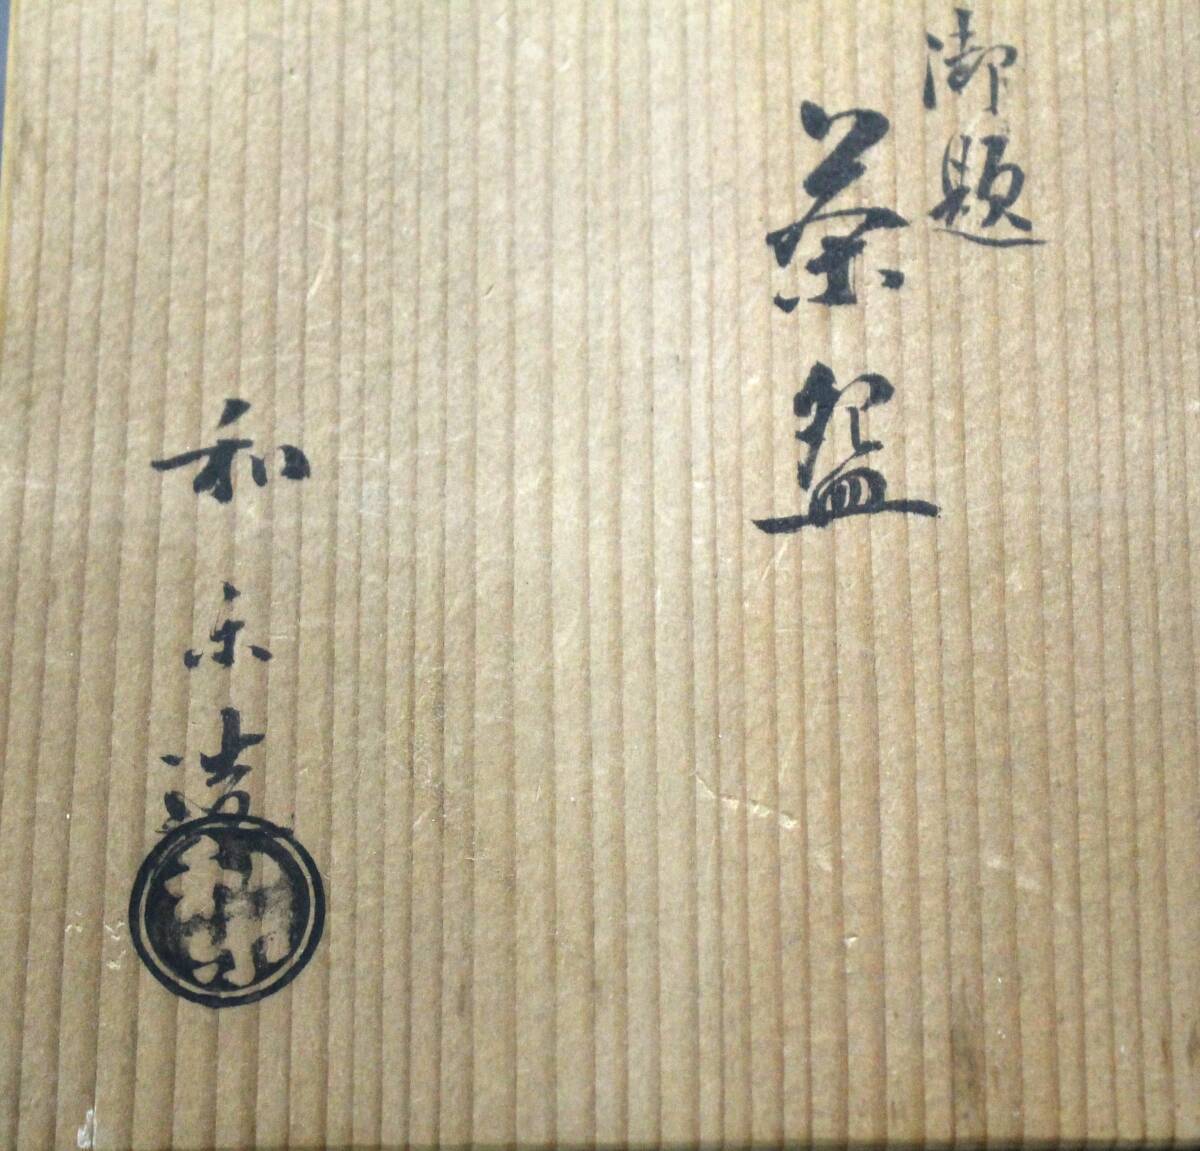 御題
茶盌
和楽造